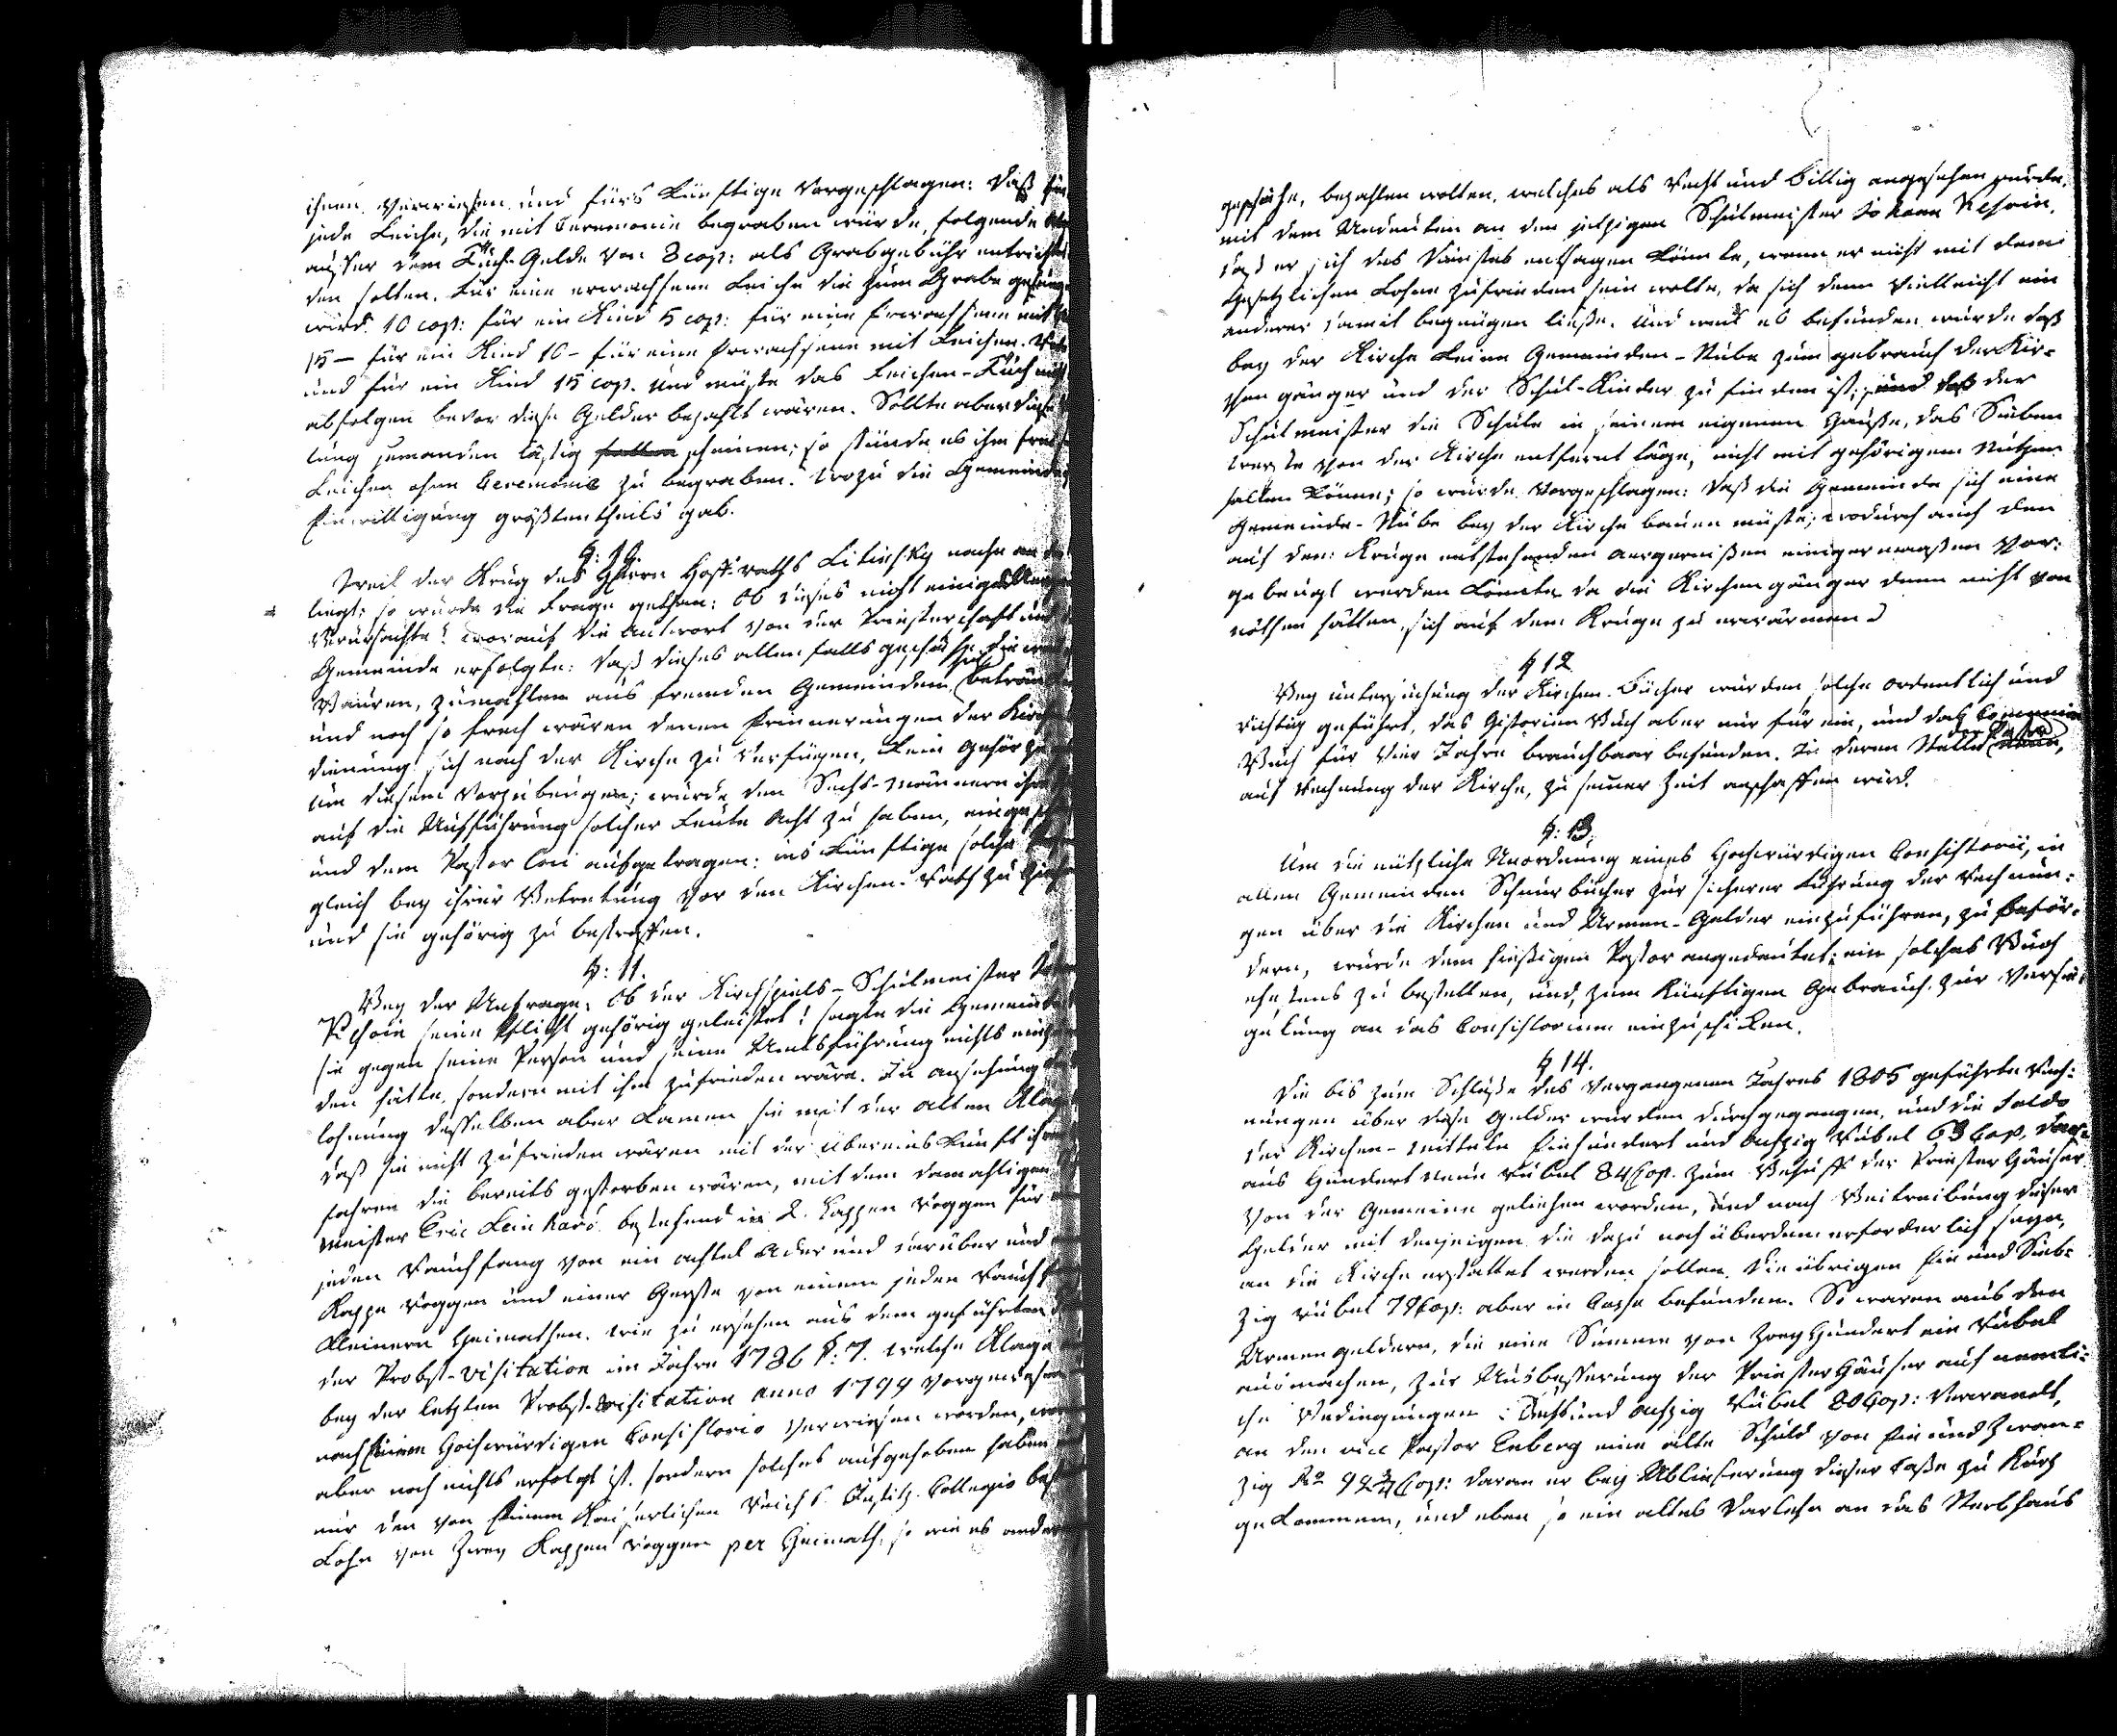 ihnen verwiesen und fürs Künftige vorgeschlagen: daß für
jede Leiche, die mit Ceremonie begraben würde, folgende
ausser dem Tuch-Gelde von 8 cop: als Grabgebühr entrichtet
den solten. Für eine erwachsene Leiche die zum Grabe gesungen
wird 10 cop: für ein Kind 5 cop: für eine Erwachsene mit
15 – für ein Kind 10 – für eine Erwachsene mit Leichen-
und für ein Kind 15 cop. Und müste das Leichen-Tuch nicht
abfolgen bevor diese Gelder bezahlt wären. Sollte aber diese
lung jemanden lästig scheinen; so stünde es ihm frey
Leichen ohne Ceremonie zu begraben. Wozu die Gemeinde
Einwilligung größtentheils gab.
§: 10.
Weil der Krug des Herrn Hoff-raths Litinsky nahe an der
liegt; so wurde die Frage gethan: Ob dieses nicht einiges
Verursachte? worauf die Antwort von der Priesterschaft und
Gemeinde erfolgte: daß dieses allenfalls geschähe, die
Bauren, zumahlen aus fremden Gemeinden, sich betrün
und noch so frech wären denen Erinnerungen der Kirchen
dienung sich nach der Kirche zu verfügen, kein Gehör zu
Um diesem vorzubeugen; wurde den Sechs-männern
auf die Aufführung solcher Leute Acht zu haben,
und dem Pastor loci aufgetragen: ins Künftige solche
gleich bey ihrer Betretung vor den Kirchen-Rath zu
und sie gehörig zu bestraffen.
§: 11.
Bey der Anfrage: Ob der Kirchspiels-Schulmeister
seine Pflicht gehörig geleistet? sagte die Gemeinde
sie gegen seine Person und seine Amtsführung nichts
den hätte, sondern mit ihm zufrieden wäre. In ansehung
lohnung desselben aber kamen sie mit der alten Klage
daß sie nicht zufrieden wären mit der Übereinskunft ihrer
fahren die bereits gestorben wären, mit dem damahligen
meister Eric Leinhard bestehend in 2. Kappen Roggen für
jeden Rauchfang von ein achtel Ader und darüber und
Kappe Roggen und einer Gerste von einem jeden Rauch
Kleinern Heimathen. wie zu ersehen aus dem geführten
der Probst-visitation im Jahre 1786 §: 7. welche Klage
bey der letzten Probst-visitation anno 1799 vorgewesen
nach Einem Hochwürdigen Consistorio verwiesen worden,
aber noch nichts erfolgt ist. sondern solches aufgehoben haben
nur den von Einem Kaiserlichen Reichs-Justitz-Collegio
Lohn von zwey Kappen Roggen per Heimath, so wie es
geschähe, bezahlen wolten, welches als Recht und billig angesehen wurde,
mit dem Andeuten an den jetzigen Schulmeister Johann
daß er sich des Dienstes entsagen könnte, wenn er nicht mit dem
Gesetzlichen Lohne zufrieden sein wolte, da sich denn vielleicht ein
anderer damit begnügen ließe. Und weil es befunden wurde daß
bey der Kirche keine Gemeinden-Stube zum gebrauch der Kir-
chengänger und der Schul-Kinder zu finden ist; und daß der
Schulmeister die Schule in seinem eigenen Hause, das Sieben
Werste von der Kirche entfernt läge, nicht mit gehörigem Nutzen
halten könne; so wurde vorgeschlagen: daß die Gemeinde sich eine
Gemeinde-Stube bey der Kirche bauen müste, wodurch auch den
auf dem Kruge entstehenden aergernißen einigermaßen vor-
gebeugt werden könnte da die Kirchengänger denn nicht von
nöthen hätten, sich auf dem Kruge zu erwärmen
§ 12
Bey untersuchung der Kirchen-Bücher wurden solche ordentlich und
richtig geführt, das Historien Buch aber nur für ein, und das Communion
Buch für Vier Jahre brauchbaar befunden. In deren Stelle
auf Rechnung der Kirche, zu seiner Zeit anschaffen wird.
§: 13.
Um die nützliche Anordnung eines Hochwürdigen Consistorii, in
allen Gemeinden Schnurbücher zur sicherer Führung der Rechnun-
gen über die Kirchen und Armen-Gelder einzuführen, zu beför-
dern, wurde dem hiesigen Pastor angedeutet: ein solches Buch
ehestens zu bestellen, und, zum Künftigen Gebrauch zur Versie-
gelung an das Consistorium einzuschicken.
§ 14.
Die bis zum Schluße des vergangenen Jahres 1805 geführte Rech-
nungen über diese Gelder wurden durchgegangen, und die Saldo
der Kirchen-mitteln Einhundert und Achzig Rubel 63 Cop,
aus Hundert neun Rubel 84 Cop. zum Behuff der Priester Häuser
von der Gemeine geliehen worden, und nach Beitreibung dieser
Gelder mit denjenigen die dazu noch überdem erforderlich seyn,
an die Kirche erstattet werden sollen. Die übrigen Ein und Sieb-
zig Rubel 79 Cop: aber in Cassa befunden. So waren aus den
Armengeldern, die eine Summe von Zwey Hundert ein Rubel
ausmachen, zur Ausbesserung der Priester Häuser auf nemli-
che Bedingungen: Acht und Achzig Rubel 80 Cop: verwandt,
an den vice Pastor Enberg eine alte Schuld von Ein und Zwan-
zig Ro 92 3/4 Cop: daran er bey Ablieferung dieser Casse zu Kurtz
gekommen, und eben so ein altes Darlehn an das Sterbhaus